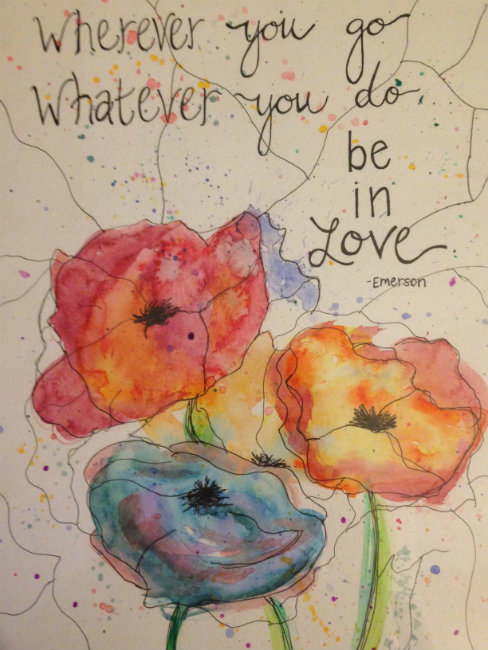 Wherever you go
Whatever you do
be
in
Love
-Emerson